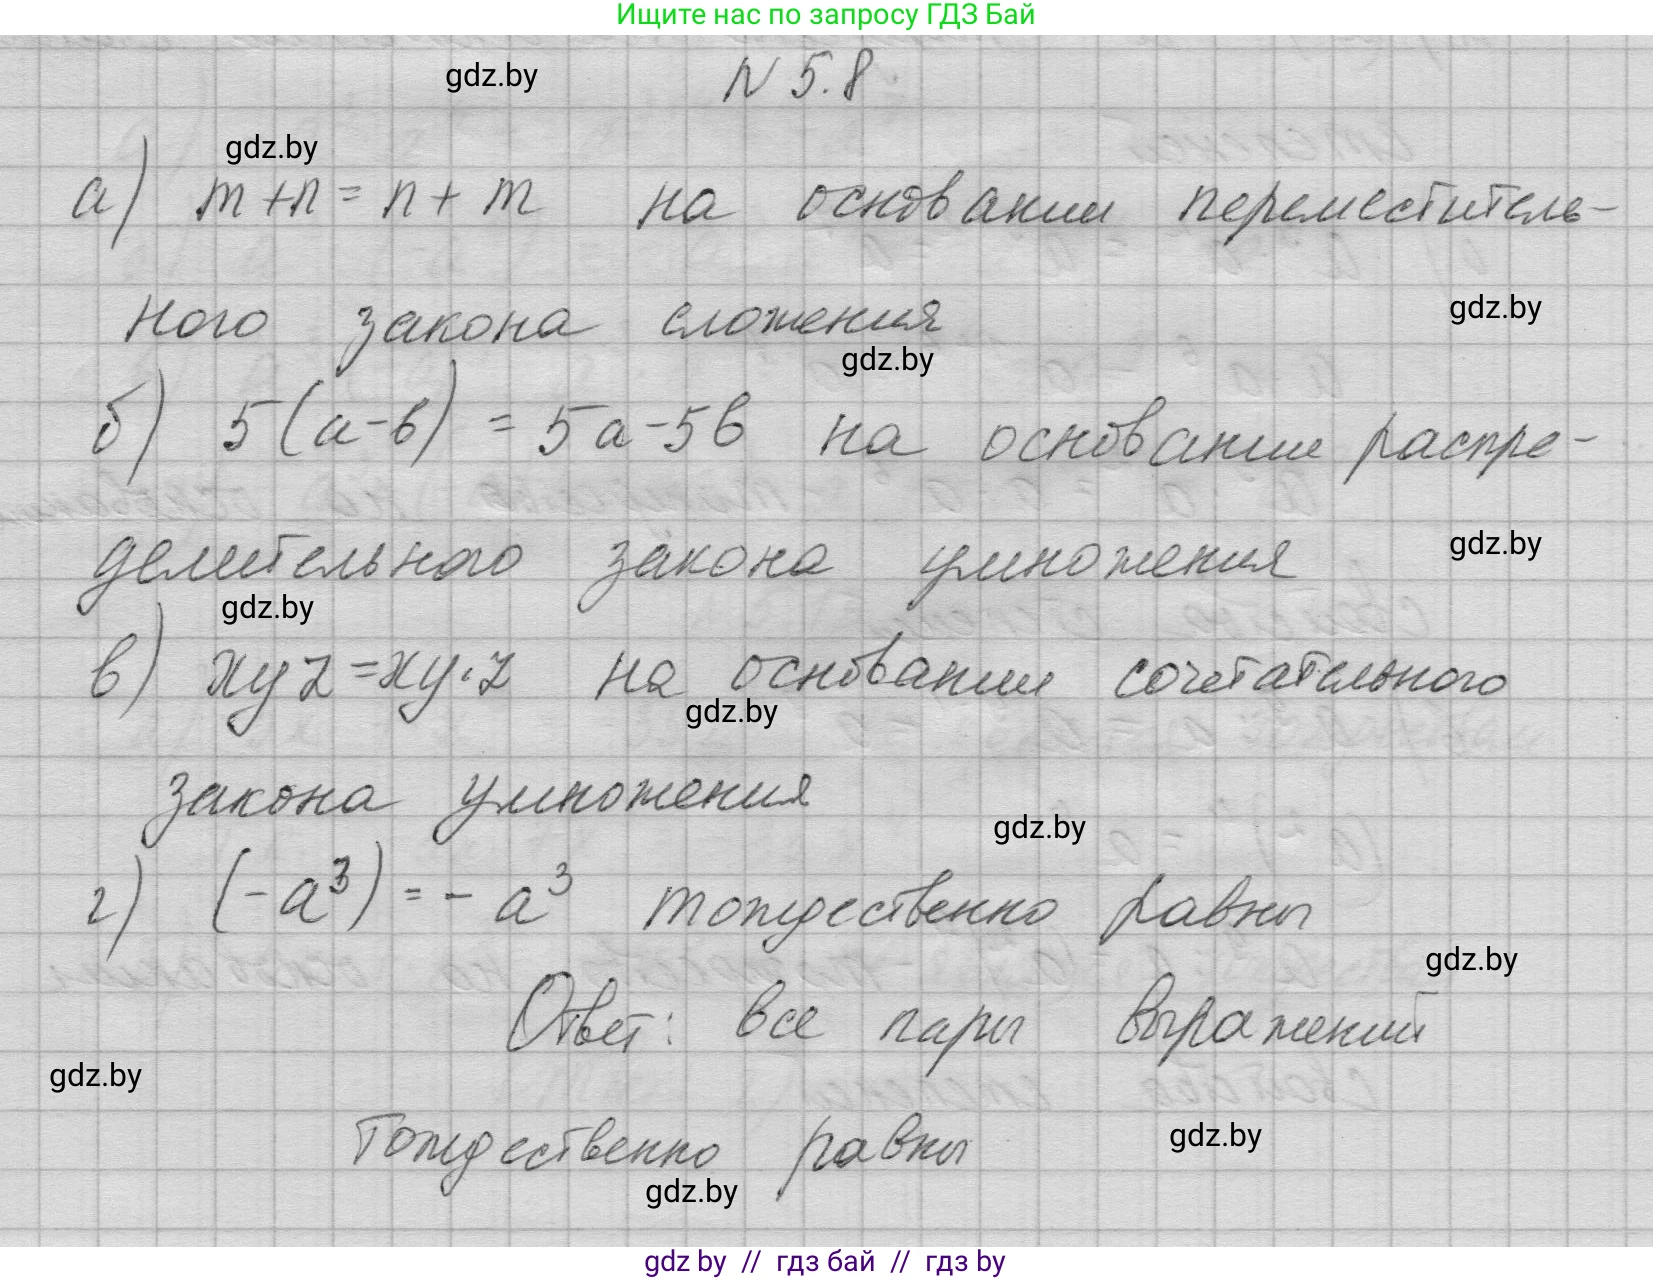 Ищите нас по запросу ГДЗ Бай
gdz.by
N 5.8
gdz.by
а) m+n = n + m на основании переместитель-
gdz.by
ного закона сложения
gdz.by
б) 5(а-в) = 5а-5в на основании распре-
gdz.by
делительного закона умножения
gdz.by
в) xyz=xy·z на основании сочетательного
gdz.by
закона умножения
gdz.by
г) (-a³) = - a³ тождественно равны
gdz.by
Ответ: все пары выражений
gdz.by
gdz.by
тождественно равны
gdz.by
gdz by // гдз бай // гдз by